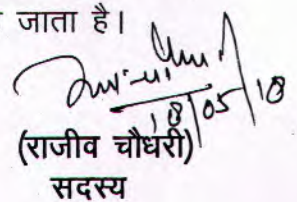 जाता है।
18/05/18
(राजीव चौधरी)
सदस्य